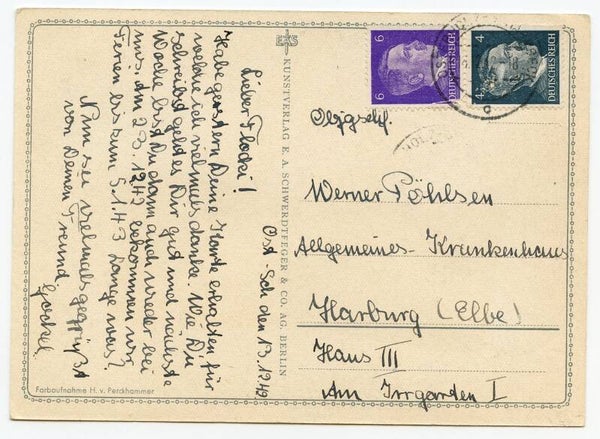 Ost-Sch den 13.12 42
Lieber Flocki!
Habe gestern Deine Karte erhalten für
welche ich vielmals danke. Wie Du
schreibst geht es Dir gut und nächste
Woche bist Du dann auch wieder bei
uns. Am 22.12.42 bekommen wir
Ferien bis zum 5.1.43 Lange was?
Nun sei vielmals gegrüßt
von Deinem Freund
KUNSTVERLAG E. A. SCHWERDTFEGER & CO. AG. BERLIN
Farbaufnahme H. v. Perckhammer
6
6
DEUTSCHES REICH
4
4
DEUTSCHES REICH
Werner Pöhlsen
Allgemeines-Krankenhaus
Harburg (Elbe)
Haus III
Am Irrgarten I